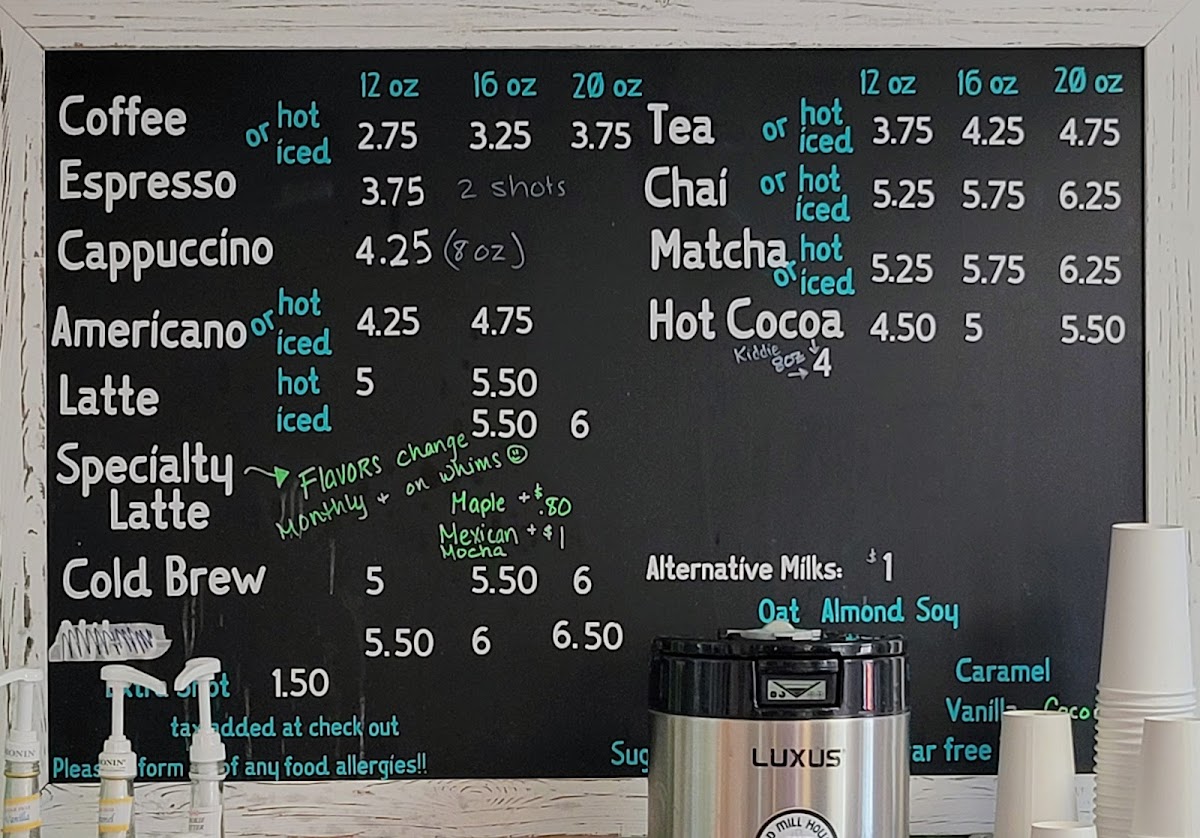 12 oz 16 oz 20 oz
Coffee hot or iced 2.75 3.25 3.75
Espresso 3.75 2 shots
Cappuccino 4.25 (8 oz)
Americano hot or iced 4.25 4.75
Latte hot 5 5.50
iced 5.50 6
Specialty Latte
Flavors change
Monthly + on whims
Maple + $.80
Mexican + $1
Mocha
Cold Brew 5 5.50 6
5.50 6 6.50
Extra Shot 1.50
tax added at check out
of any food allergies!!
12 oz 16 oz 20 oz
Tea hot or iced 3.75 4.25 4.75
Chai hot or iced 5.25 5.75 6.25
Matcha hot or iced 5.25 5.75 6.25
Hot Cocoa 4.50 5 5.50
Kiddie 8oz 4
Alternative Milks: $1
Oat Almond Soy
Caramel
Vanilla Coco
free
LUXUS
MILL